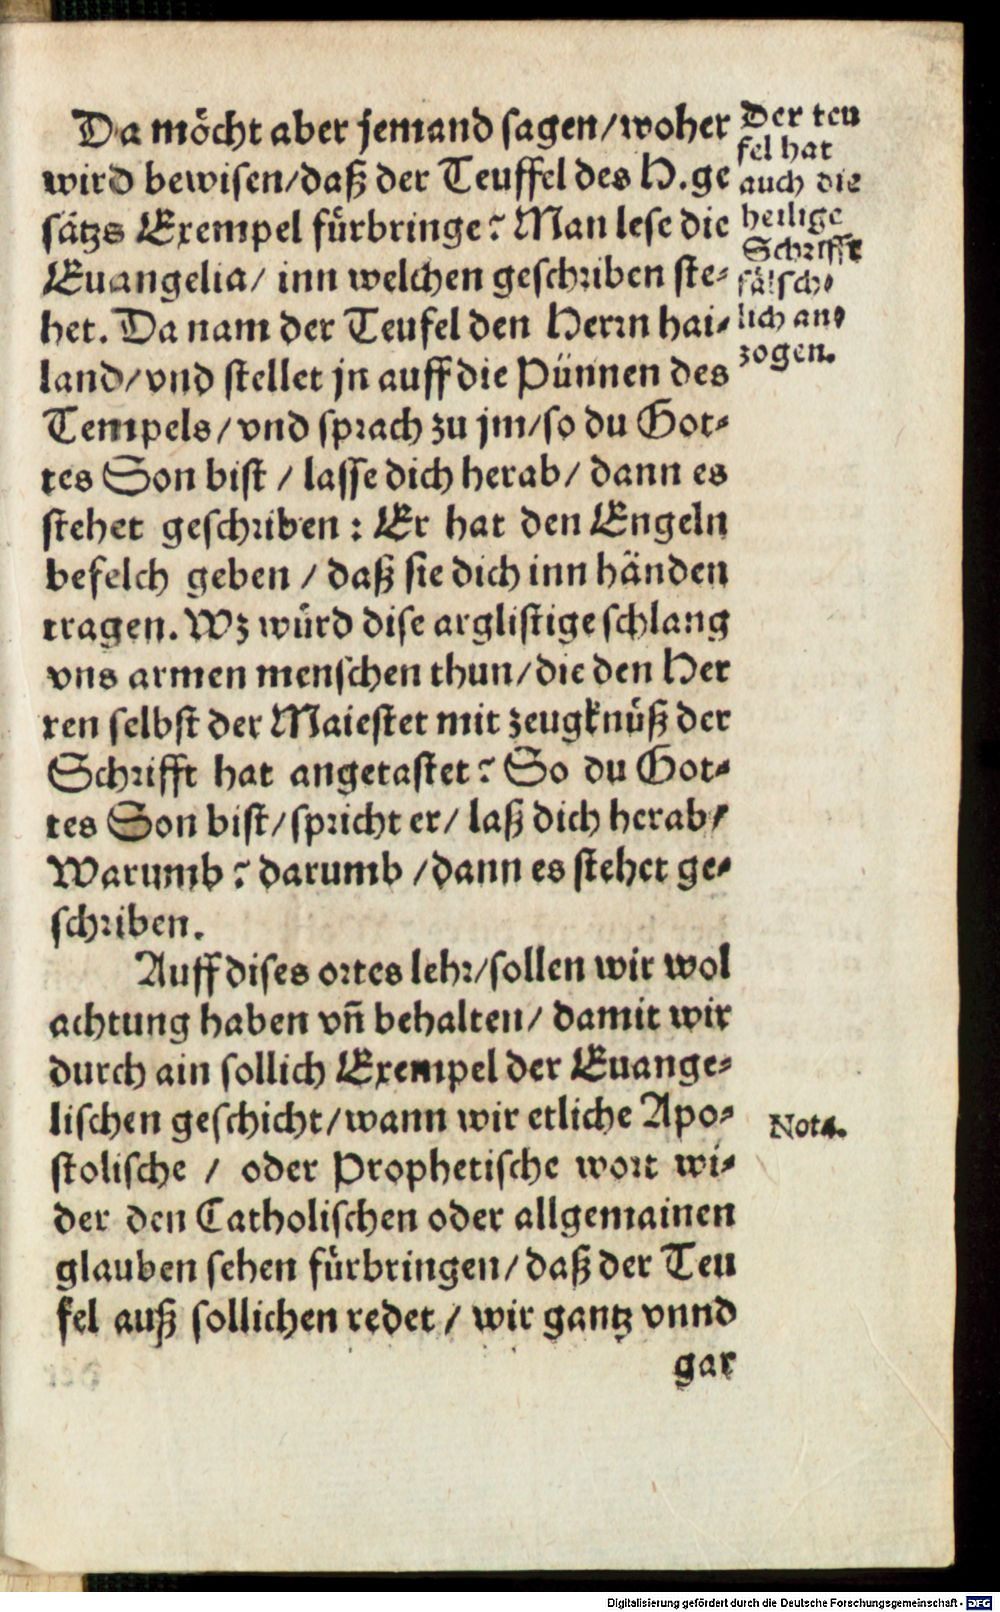 Da möcht aber jemand sagen/woher
wird bewisen/daß der Teuffel des H.ge
sätzs Exempel fürbringe? Man lese die
Euangelia/ inn welchen geschriben ste-
het. Da nam der Teufel den Herrn hai-
land/vnd stellet jn auff die Pünnen des
Tempels/vnd sprach zu jm/so du Got-
tes Son bist / lasse dich herab/ dann es
stehet geschriben : Er hat den Engeln
befelch geben / daß sie dich inn händen
tragen. Wz würd dise arglistige schlang
vns armen menschen thun/die den Her
ren selbst der Maiestet mit zeugknüß der
Schrifft hat angetastet? So du Got-
tes Son bist/spricht er/ laß dich herab/
Warumb? darumb /dann es stehet ge-
schriben.
Auff dises ortes lehr/sollen wir wol
achtung haben vñ behalten/ damit wir
durch ain sollich Exempel der Euange-
lischen geschicht/wann wir etliche Apo-
stolische / oder Prophetische wort wi-
der den Catholischen oder allgemainen
glauben sehen fürbringen/daß der Teu
fel auß sollichen redet / wir gantz vnnd
gar
Der teu
fel hat
auch die
heilige
Schrifft
fälsch-
lich an-
zogen.
Nota.
Digitalisierung gefördert durch die Deutsche Forschungsgemeinschaft - DFG